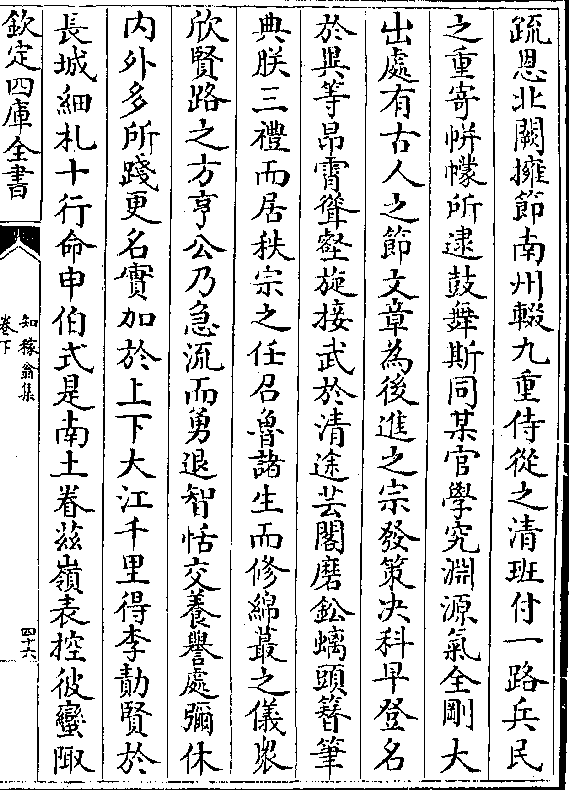 疏恩北闕擁節南州輟九重侍從之清班付一路兵民
之重寄帡幪所逮鼓舞斯同某官學究淵源氣全剛大
出處有古人之節文章為後進之宗發策决科早登名
於異等昻霄聳壑旋接武於清途芸閣磨鈆螭頭簪筆
典朕三禮而居秩宗之任召魯諸生而修綿蕞之儀衆
欣賢路之方亨公乃急流而勇退智恬交養譽處彌休
内外多所踐更名實加於上下大江千里得李勣賢於
長城細札十行命申伯式是南土眷兹嶺表控彼蠻陬
欽定四庫全書
知稼翁集
卷下
四十六